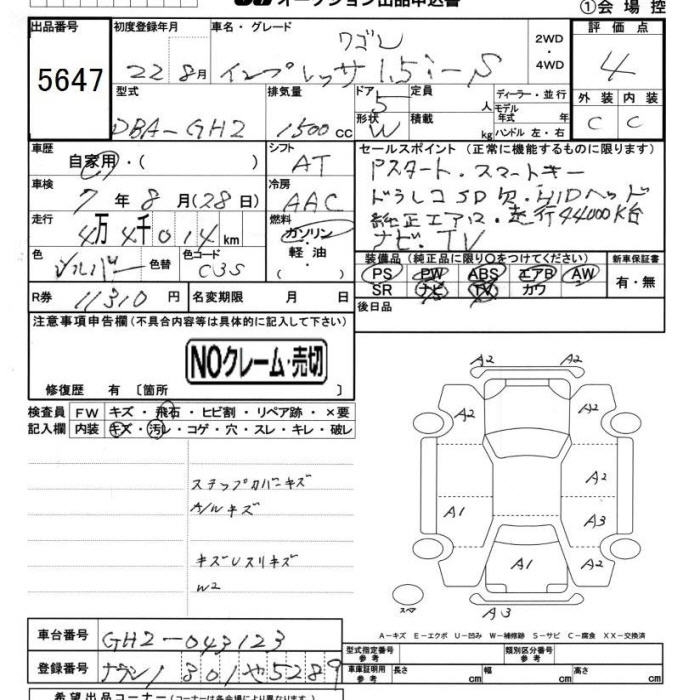 オークション出品申込書
①会場控
出品番号
5647
初度登録年月
22 8月
車名・グレード
ワゴン
インプレッサ 1.5i-S
2WD
・
4WD
評価点
4
外装 内装
C C
型式
DBA-GH2
排気量
1500cc
ドア
5
形状
W
定員
人
積載
kg
ディーラー・並行
モデル年式 年
ハンドル 左・右
車歴
自家用・( )
シフト
AT
車検
7年8月(28日)
冷房
AAC
走行
4万4千014km
燃料
ガソリン
・
軽油
( )
色
シルバー
色替
色コード
C3S
R券
11310円
名変期限 月 日
セールスポイント (正常に機能するものに限ります)
Pスタート・スマートキー
ドラレコSD欠・HIDヘッド
純正エアロ・走行44000K台
ナビ・TV
装備品(純正品に限り○をつけてください)
PS PW ABS エアB AW
SR ナビ TV カワ
新車保証書
有・無
後日品
注意事項申告欄(不具合内容等は具体的に記入して下さい)
NOクレーム・売切
修復歴 有 〔箇所 〕
検査員
記入欄
FW キズ・飛石・ヒビ割・リペア跡・×要
内装 キズ・汚レ・コゲ・穴・スレ・キレ・破レ
ステップカバーキズ
A/Wキズ
キズUスリキズ
W2
A2 A2
A2 A2
A2
A1 A3
A1 A2
スペア
A3
A-キズ E-エクボ U-凹み W-補修跡 S-サビ C-腐食 XX-交換済
車台番号
GH2-043123
登録番号
801 5289
型式指定番号
参考
類別区分番号
参考
車庫証明用
参考
長さ cm 幅 cm 高さ cm
希望出品コーナー(コーナー名は各会場により異なります)